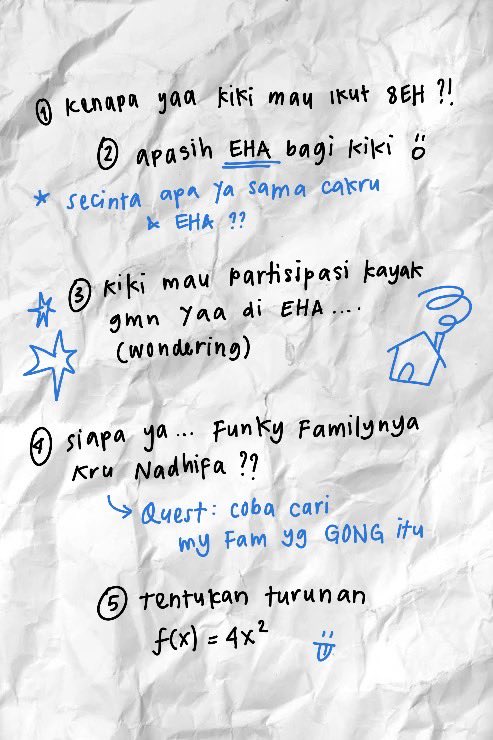 ① kenapa yaa kiki mau ikut 8EH ?!
② apasih EHA bagi kiki
* secinta apa ya sama cakru
& EHA ??
③ kiki mau partisipasi kayak
gmn yaa di EHA ....
(wondering)
④ siapa ya ... Funky Familynya
kru Nadhifa ??
↳ Quest: coba cari
my Fam yg GONG itu
⑤ tentukan turunan
f(x) = 4x²